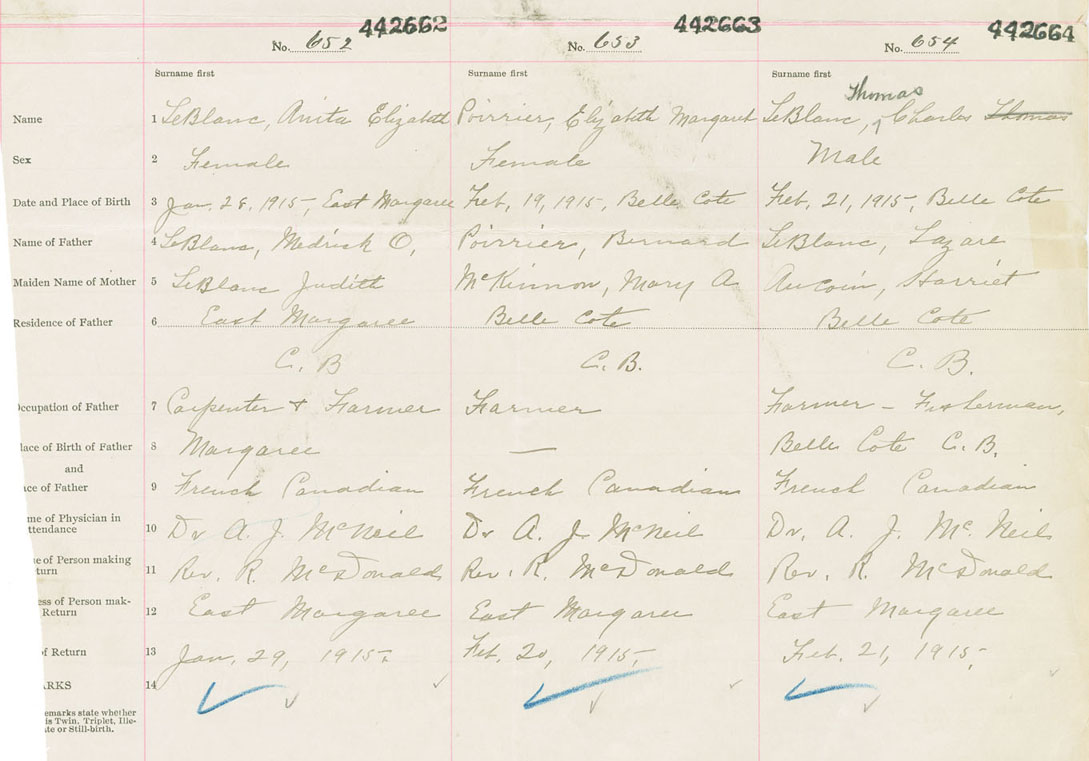 442662 442663 442664
No. 652 No. 653 No. 654
Surname first Surname first Surname first
Thomas
Name 1 LeBlanc, Anita Elizabeth Poirrier, Elizabeth Margaret LeBlanc, Charles Thomas
Sex 2 Female Female Male
Date and Place of Birth 3 Jan. 28. 1915, East Margaree Feb. 19, 1915, Belle Cote Feb. 21, 1915, Belle Cote
Name of Father 4 LeBlanc, Medrick O, Poirrier, Bernard LeBlanc, Lazare
Maiden Name of Mother 5 LeBlanc Judith McKinnon, Mary A Aucoin, Harriet
Residence of Father 6 East Margaree Belle Cote Belle Cote
C. B C. B. C. B.
ccupation of Father 7 Carpenter & Farmer Farmer Farmer - Fisherman,
lace of Birth of Father 8 Margaree — Belle Cote C. B.
and
ce of Father 9 French Canadian French Canadian French Canadian
me of Physician in
ttendance 10 Dr A. J. McNeil Dr A. J. McNeil Dr. A. J. Mc. Neil
e of Person making
turn 11 Rev. R. McDonald Rev. R. McDonald Rev. R. McDonald
ess of Person mak-
Return 12 East Margaree East Margaree East Margaree
of Return 13 Jan. 29, 1915. Feb. 20, 1915, Feb. 21, 1915,
ARKS 14
emarks state whether
is Twin, Triplet, Ille-
te or Still-birth.